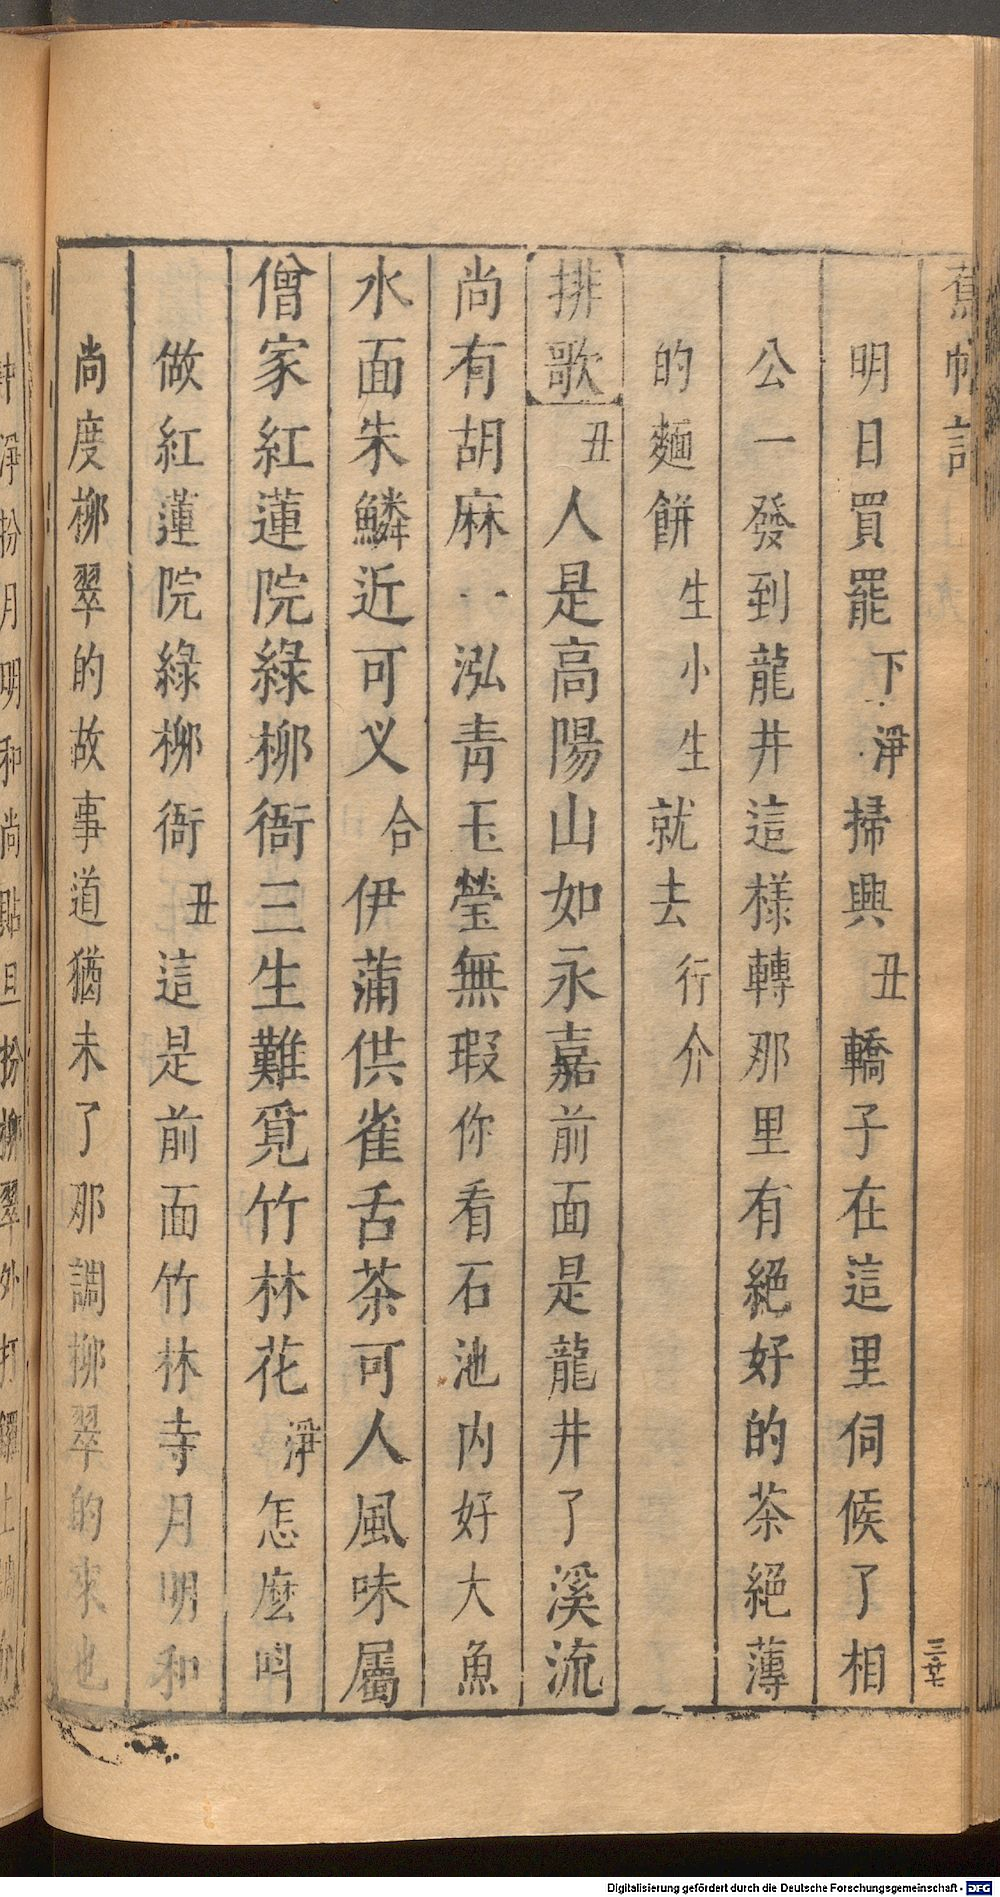 蕉帕記
三廿七
明日買罷下淨掃興丑轎子在這里伺候了相
公一發到龍井這樣轉那里有絕好的茶絕薄
的麵餅生小生就去行介
排歌丑人是高陽山如永嘉前面是龍井了溪流
尚有胡麻一泓青玉瑩無瑕你看石池內好大魚
水面朱鱗近可叉合伊蒲供雀舌茶可人風味屬
僧家紅蓮院綠柳衙三生難覓竹林花淨怎麼叫
做紅蓮院綠柳衙丑這是前面竹林寺月明和
尚度柳翠的故事道猶未了那調柳翠的來也
淨扮月明和尚點旦扮柳翠外打鑼上
Digitalisierung gefördert durch die Deutsche Forschungsgemeinschaft - DFG